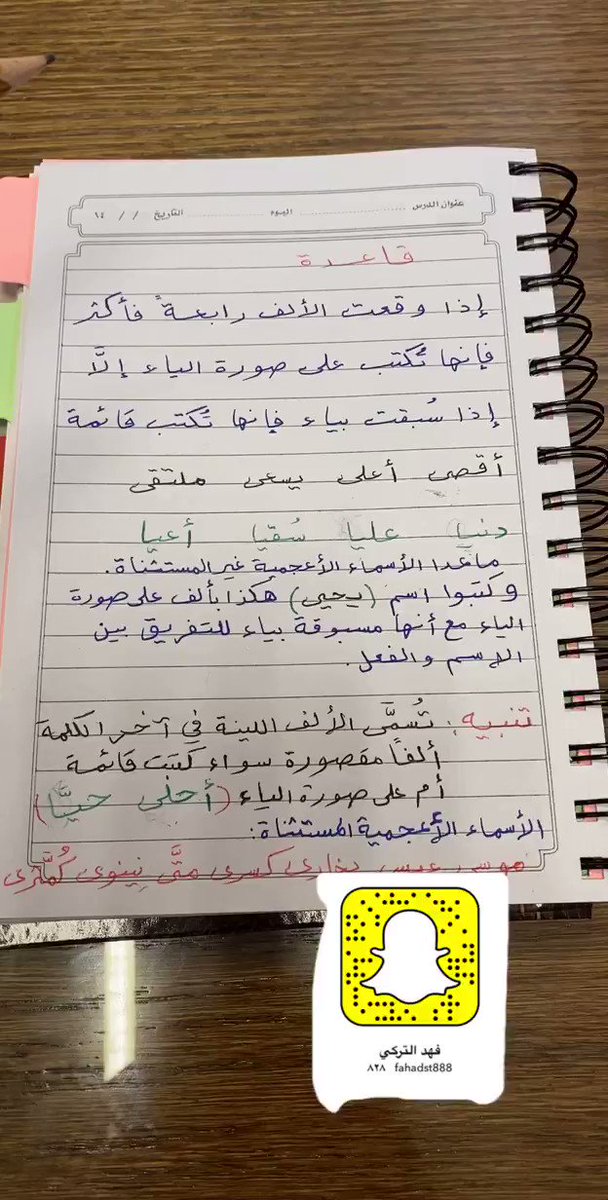 عنوان الدرس ........ اليوم ........ التاريخ / / ١٤
قاعدة
إذا وقعت الألف رابعةً فأكثر
فإنها تُكتب على صورة الياء إلَّا
إذا سُبقت بياء فإنها تُكتب قائمة
أقصى أعلى يسعى ملتقى
دنيا عليا سُقيا أعيا
ماعدا الأسماء الأعجمية غير المستثناة.
وكتبوا اسم (يحيى) هكذا بألف على صورة
الياء مع أنها مسبوقة بياء للتفريق بين
الاسم والفعل.
تنبيه: تُسمَّى الألف اللينة في آخر الكلمة
ألفاً مقصورة سواء كتبت قائمة
أم على صورة الياء (أحلى حيَّا)
الأسماء الأعجمية المستثناة:
موسى عيسى بخارى كسرى متَّى نِينوى كُمَّثرى
فهد التركي
٨٢٨ fahadst888